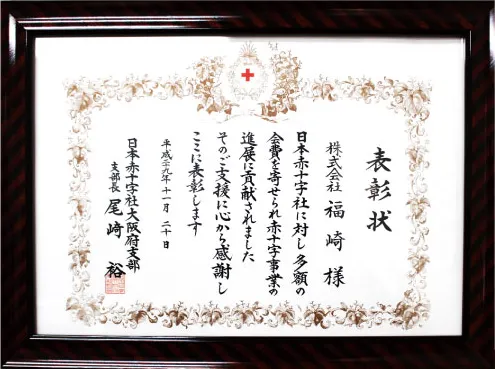 表彰状
株式会社 福崎 様
日本赤十字社に対し多額の
会費を寄せられ赤十字事業の
進展に貢献されました
そのご支援に心から感謝し
ここに表彰します
平成二十九年十一月二十日
日本赤十字社大阪府支部
支部長 尾崎 裕